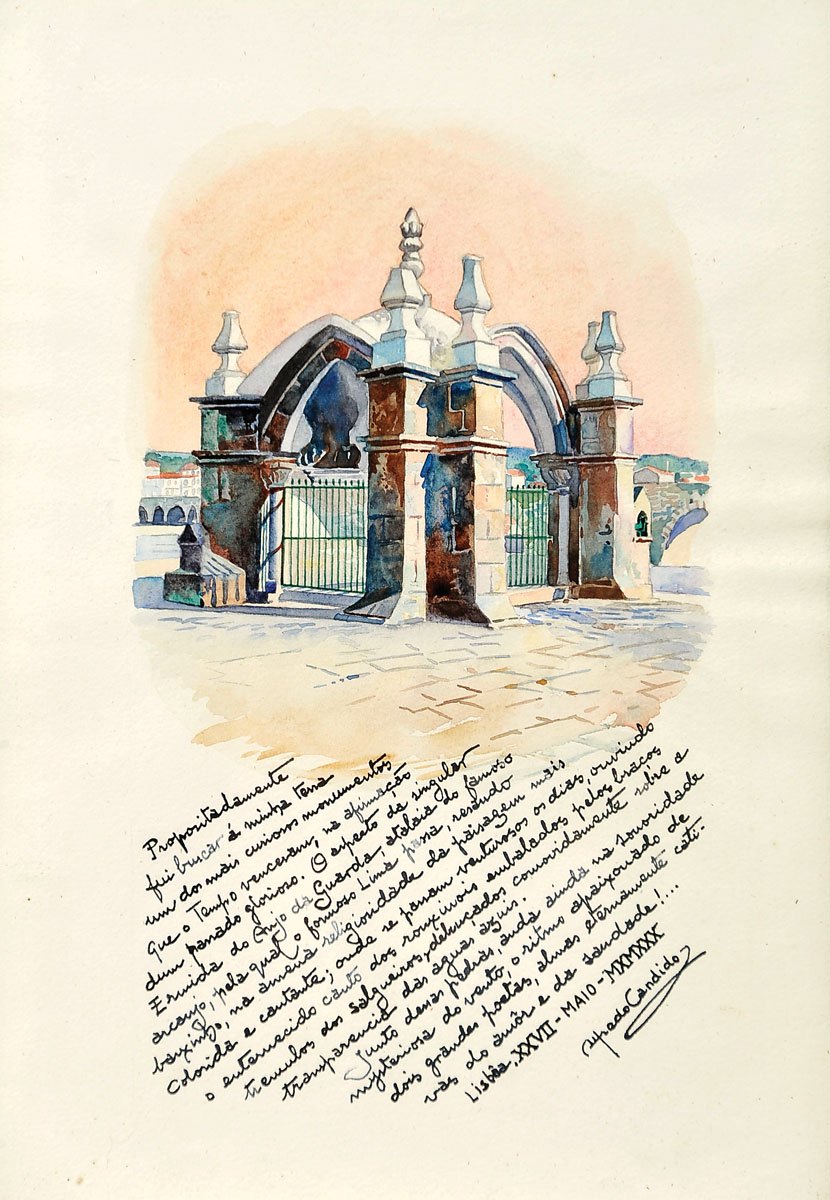 Propositadamente
fui buscar á minha terra
um dos mais curiosos monumentos
que o Tempo venceram, na afirmação
dum passado glorioso. O aspecto da singular
Ermida do Anjo da Guarda, atalaia do famoso
arcanjo, pela qual o formoso Lima passa, resando
baixinho, na amena religiosidade da paisagem mais
colorida e cantante; onde se passam venturosos os dias, ouvindo
o enternecido canto dos rouxinois embalados pelos braços
tremulos dos salgueiros, debruçados comovidamente sôbre a
transparencia das aguas azuis.
Junto dessas pedras, anda ainda na sonoridade
mysteriosa do vento, o ritmo apaixonado de
dois grandes poetas, almas eternamente cati-
vas do amôr e da saudade!...
Lisbôa, XXVII-MAIO-MXMXXX
Alfredo Candido